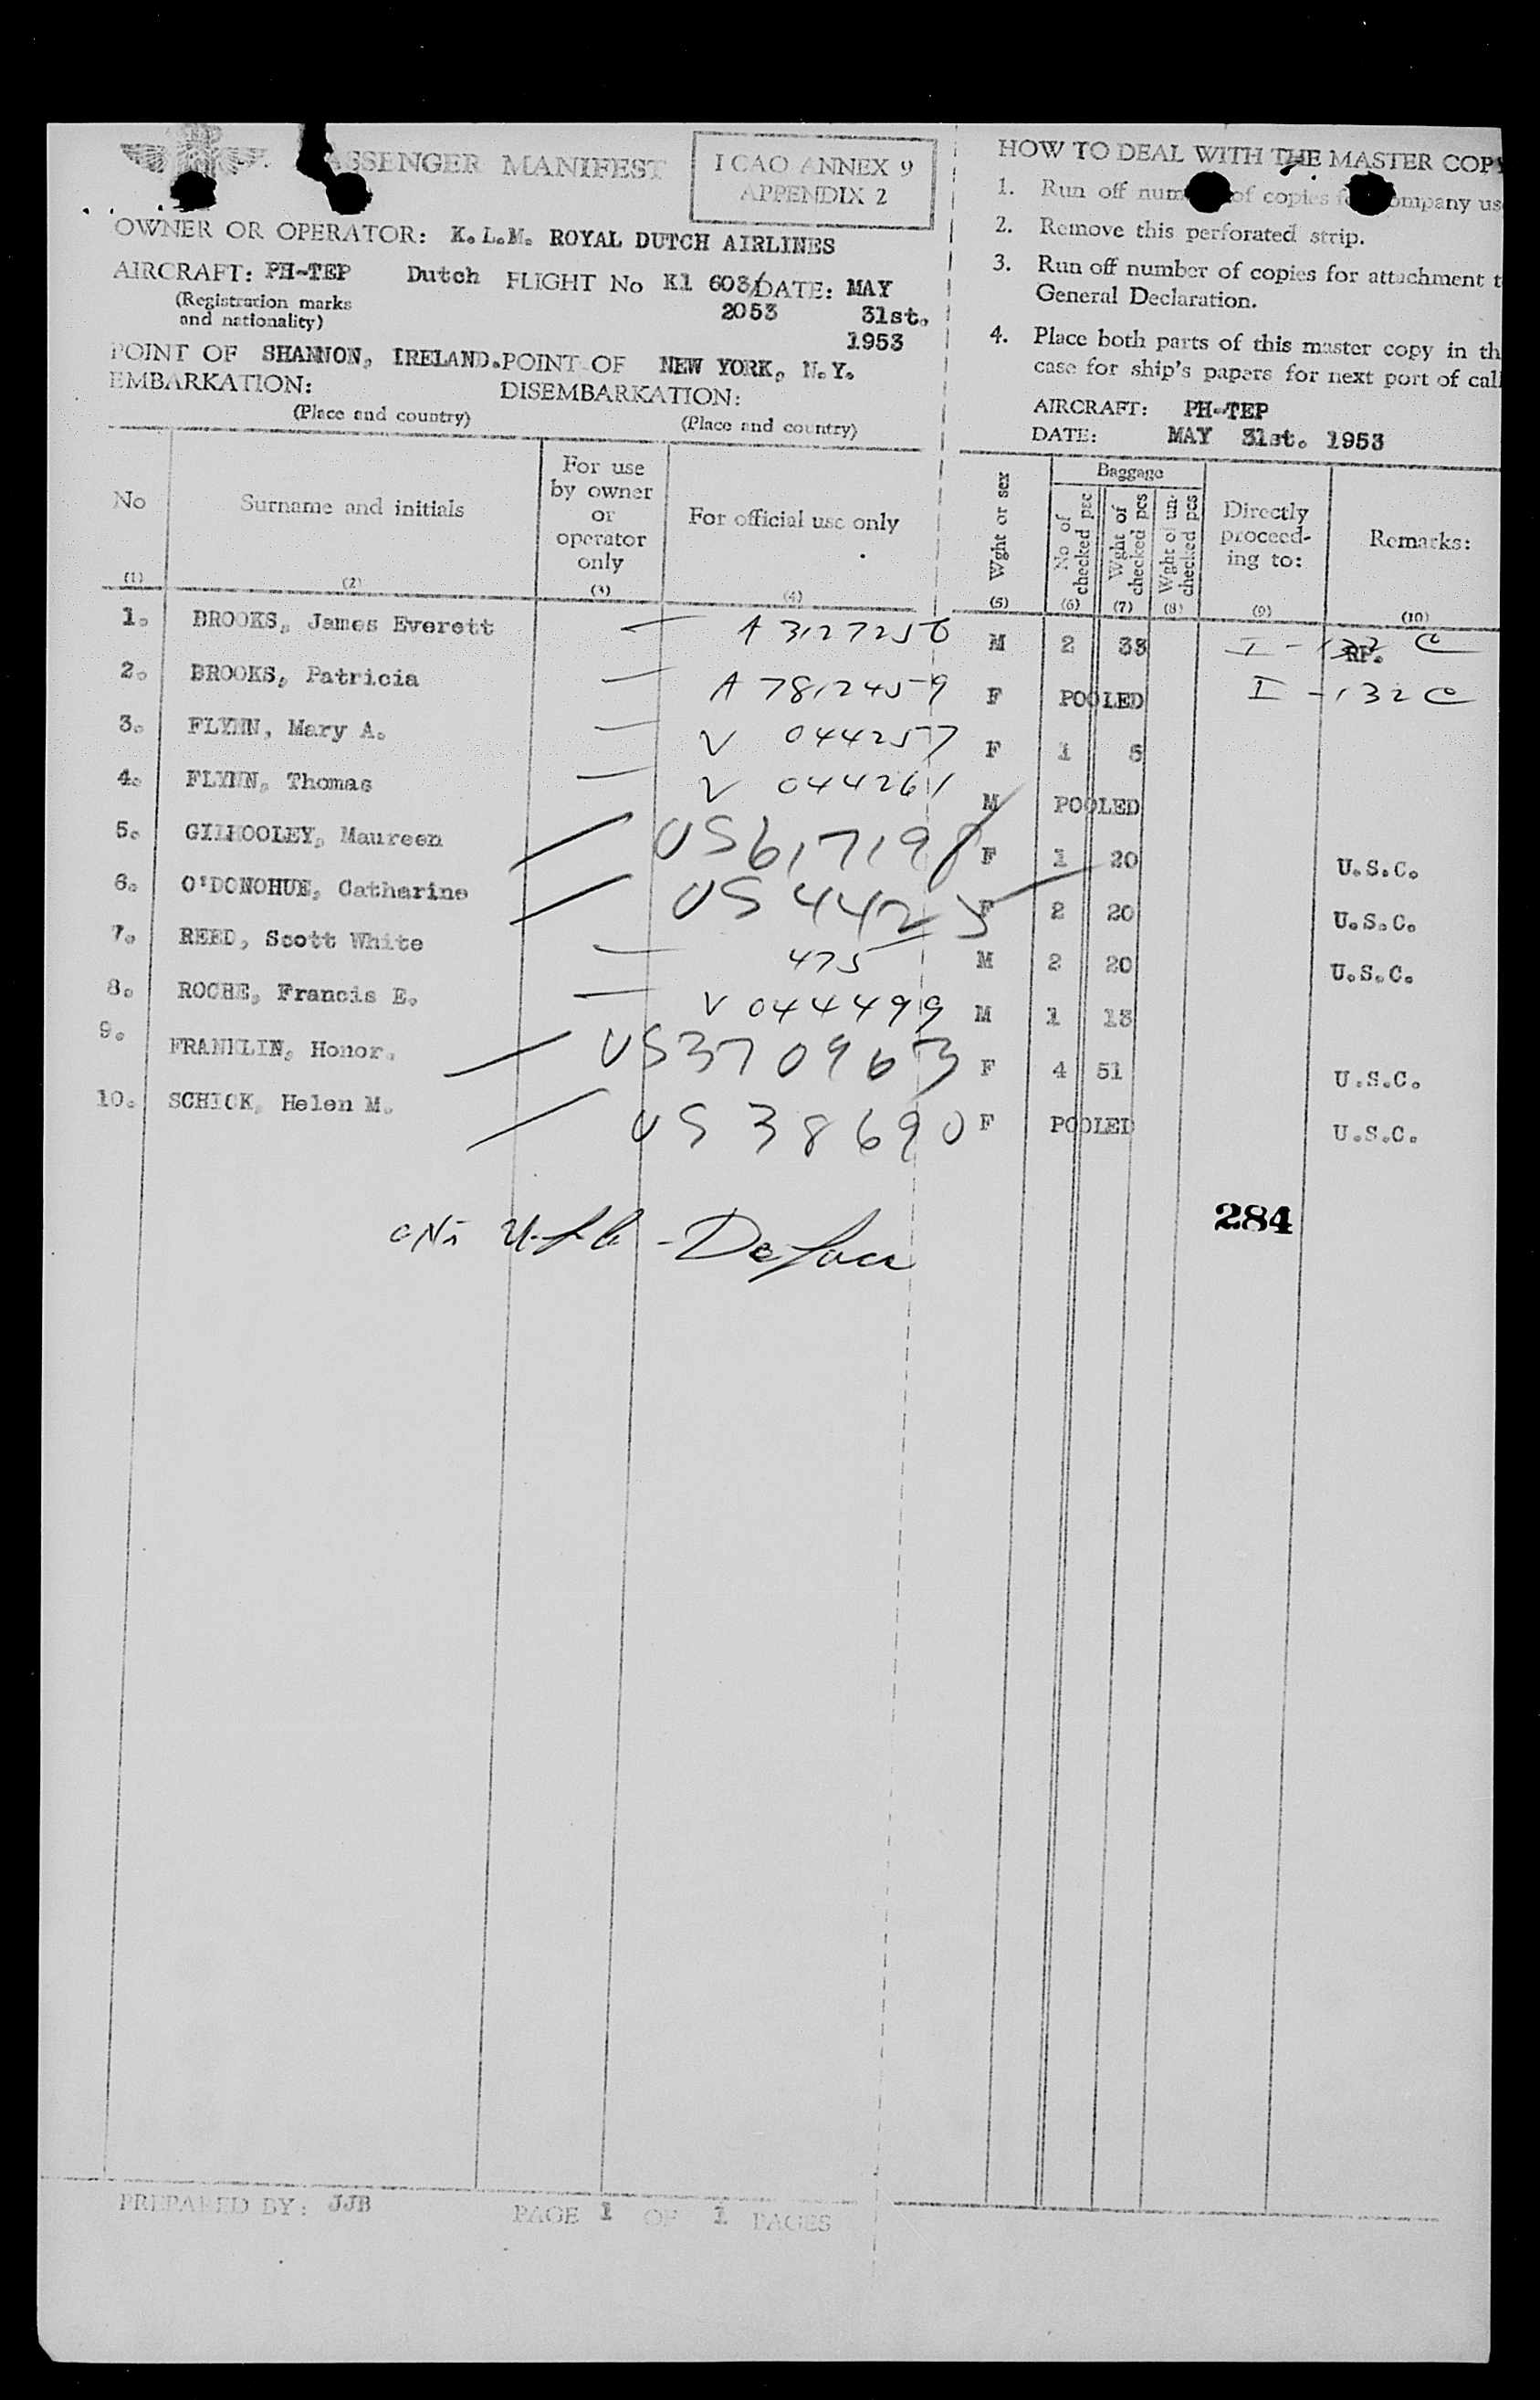 PASSENGER MANIFEST
ICAO ANNEX 9
APPENDIX 2
OWNER OR OPERATOR: K.L.M. ROYAL DUTCH AIRLINES
AIRCRAFT: PH-TEP Dutch FLIGHT No Kl 603/ DATE: MAY
(Registration marks 2053 31st.
and nationality) 1953
POINT OF SHANNON, IRELAND. POINT OF NEW YORK, N.Y.
EMBARKATION: DISEMBARKATION:
(Place and country) (Place and country)
HOW TO DEAL WITH THE MASTER COPY
1. Run off of copies company us
2. Remove this perforated strip.
3. Run off number of copies for attachment t
General Declaration.
4. Place both parts of this master copy in th
case for ship's papers for next port of call
AIRCRAFT: PH-TEP
DATE: MAY 31st. 1953
No
(1)
Surname and initials
(2)
For use
by owner
or
operator
only
(3)
For official use only
(4)
Wght or sex
(5)
Baggage
No of
checked pcc
(6)
Wght of
checked pcs
(7)
Wght of un-
checked pcs
(8)
Directly
proceed-
ing to:
(9)
Remarks:
(10)
1. BROOKS, James Everett — A 3127256 M 2 33 I-132 C RP.
2. BROOKS, Patricia — A 7812459 F POOLED I-132 C
3. FLYNN, Mary A. — V 044257 F 1 5
4. FLYNN, Thomas — V 044261 M POOLED
5. GILHOOLEY, Maureen US 617198 F 1 20 U.S.C.
6. O'DONOHUE, Catharine US 4425 F 2 20 U.S.C.
7. REED, Scott White — 475 M 2 20 U.S.C.
8. ROCHE, Francis E. — V 044499 M 1 13
9. FRANKLIN, Honor. US 370963 F 4 51 U.S.C.
10. SCHICK, Helen M. US 38690 F POOLED U.S.C.
284
PREPARED BY: JJB PAGE 1 OF 1 PAGES